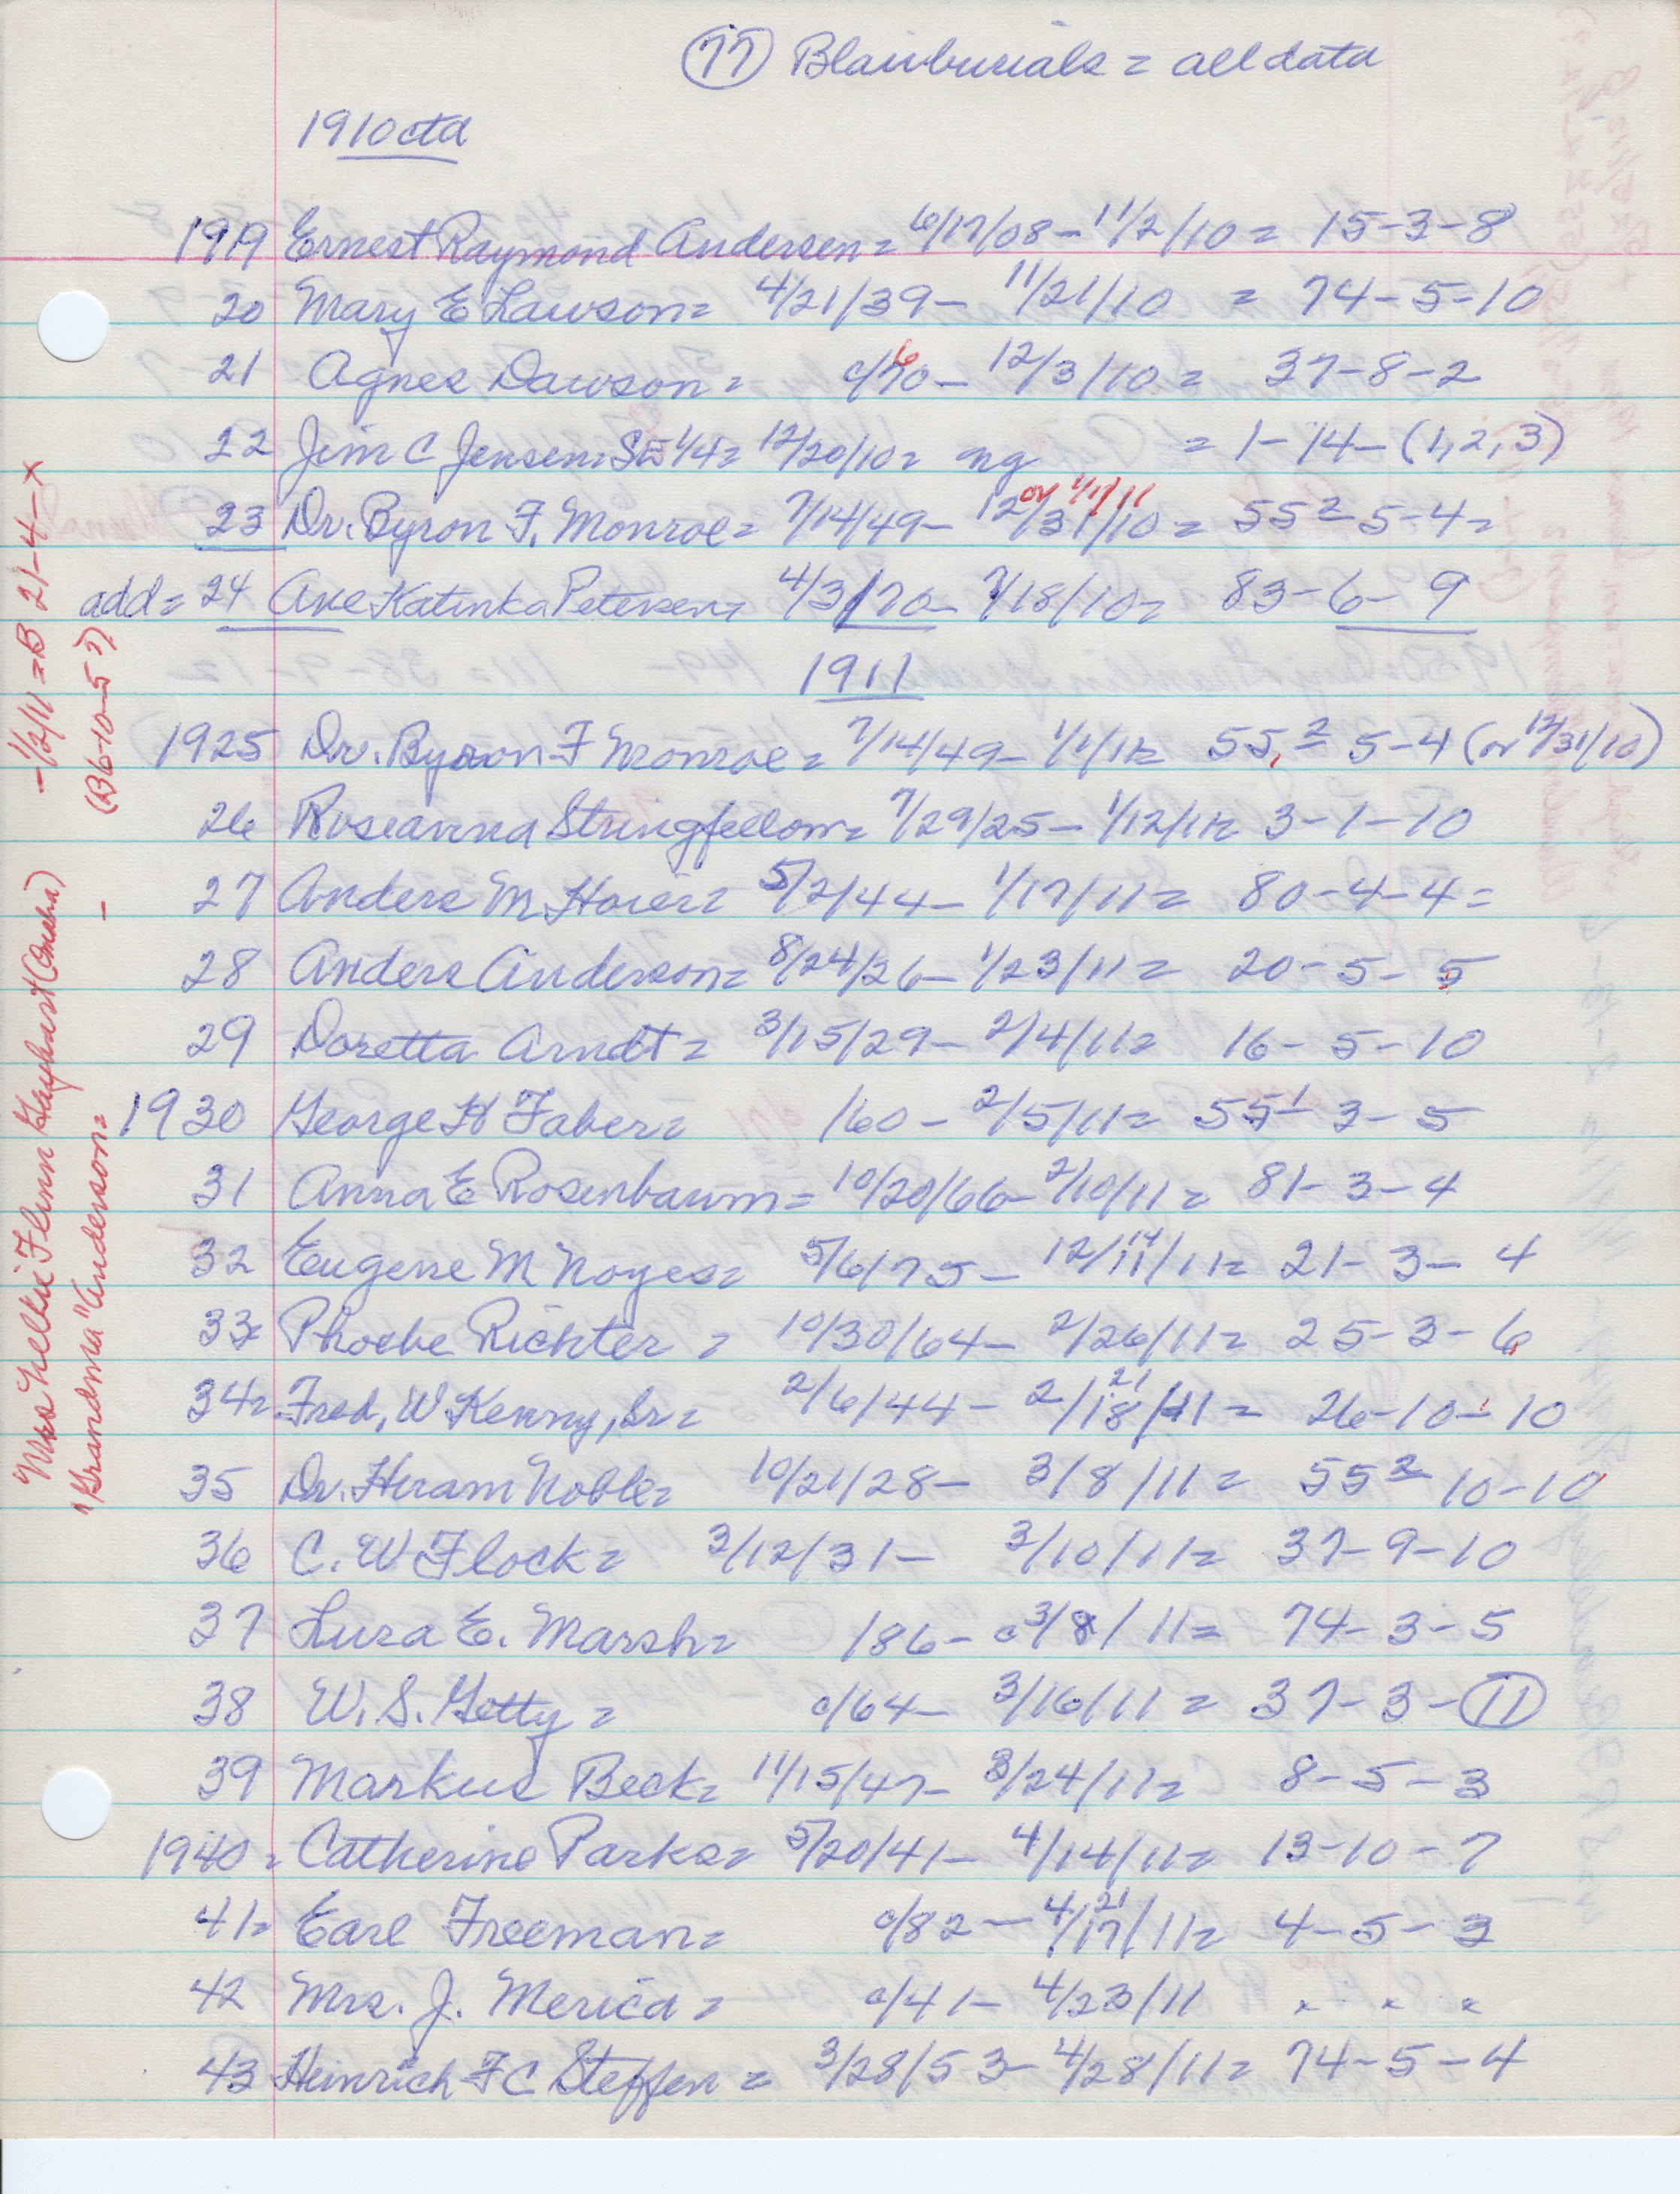 (77) Blair burials = all data
1910 ctd
1919 Ernest Raymond Andersen = 6/17/08 - 11/2/10 = 15-3-8
20 Mary E Lawson = 4/21/39 - 11/21/10 = 74-5-10
21 Agnes Dawson = c/70 - 12/3/10 = 37-8-2
6
22 Jim C Jensen = SE 1/4 = 12/20/10 = ng = 1-14-(1,2,3)
or 1/1/11
23 Dr. Byron F. Monroe = 7/14/49 - 12/31/10 = 55² 5-4 =
add = 24 Ane Katinka Petersen = 4/3/70 - 7/18/10 = 83-6-9
1911
1925 Dr. Byron F Monroe = 7/14/49 - 1/1/11 = 55,² 5-4 (or 12/31/10)
26 Roseanna Stringfellow = 7/29/25 - 1/12/11 = 3-1-10
27 Anders M. Hoier = 5/2/44 - 1/17/11 = 80-4-4 =
28 Anders Anderson = 8/24/26 - 1/23/11 = 20-5-5
29 Doretta Arndt = 3/15/29 - 2/4/11 = 16-5-10
1930 George H Faber = /60 - 2/5/11 = 55¹ - 3-5
31 Anna E Rosenbaum = 10/20/66 - 2/10/11 = 81-3-4
14
32 Eugene M Noyes = 5/6/75 - 12/11/11 = 21-3-4
33 = Phoebe Richter = 10/30/64 - 2/26/11 = 25-3-6
21
34 = Fred, W Kenny, Sr = 2/6/44 - 2/18/11 = 26-10-10
35 Dr. Hiram Noble = 10/21/28 - 3/8/11 = 55² 10-10
36 C. W Flock = 3/12/31 - 3/10/11 = 37-9-10
37 Lura E. Marsh = /86 - c3/8/11 = 74-3-5
38 W. S. Getty = c/64 - 3/16/11 = 37-3-(11)
39 Markus Beck = 11/15/47 - 3/24/11 = 8-5-3
1940 = Catherine Parks = 5/20/41 - 4/14/11 = 13-10-7
21
41 = Earl Freeman = c/82 - 4/17/11 = 4-5-3
42 Mrs. J. Merica = c/41 - 4/23/11 " " "
43 Heinrich F C Steffen = 3/28/53 - 4/28/11 = 74-5-4
Mrs Nellie Flinn Gayhart (Omaha) - 1/2/11 = B 21-4-x
"Grandma" Anderson = - (B6-10-5?)